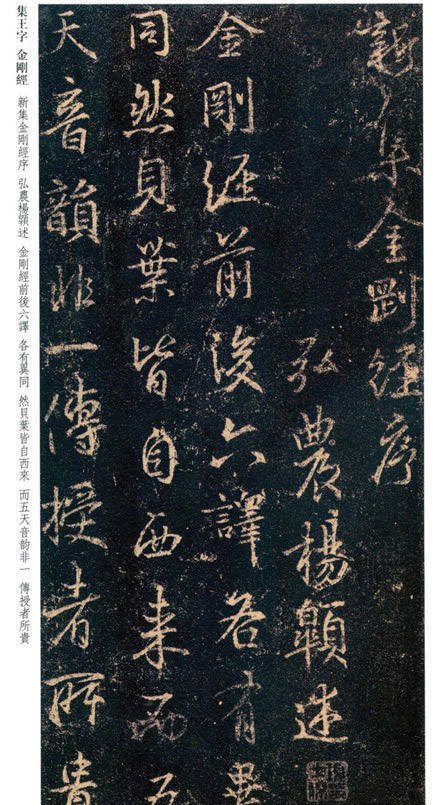 新集金剛經序
弘農楊顗述
金剛經前後六譯各有異
同然貝葉皆自西來而五
天音韻非一傳授者所貴
集王字 金剛經 新集金剛經序 弘農楊顗述 金剛經前後六譯 各有異同 然貝葉皆自西來 而五天音韵非一 傳授者所貴